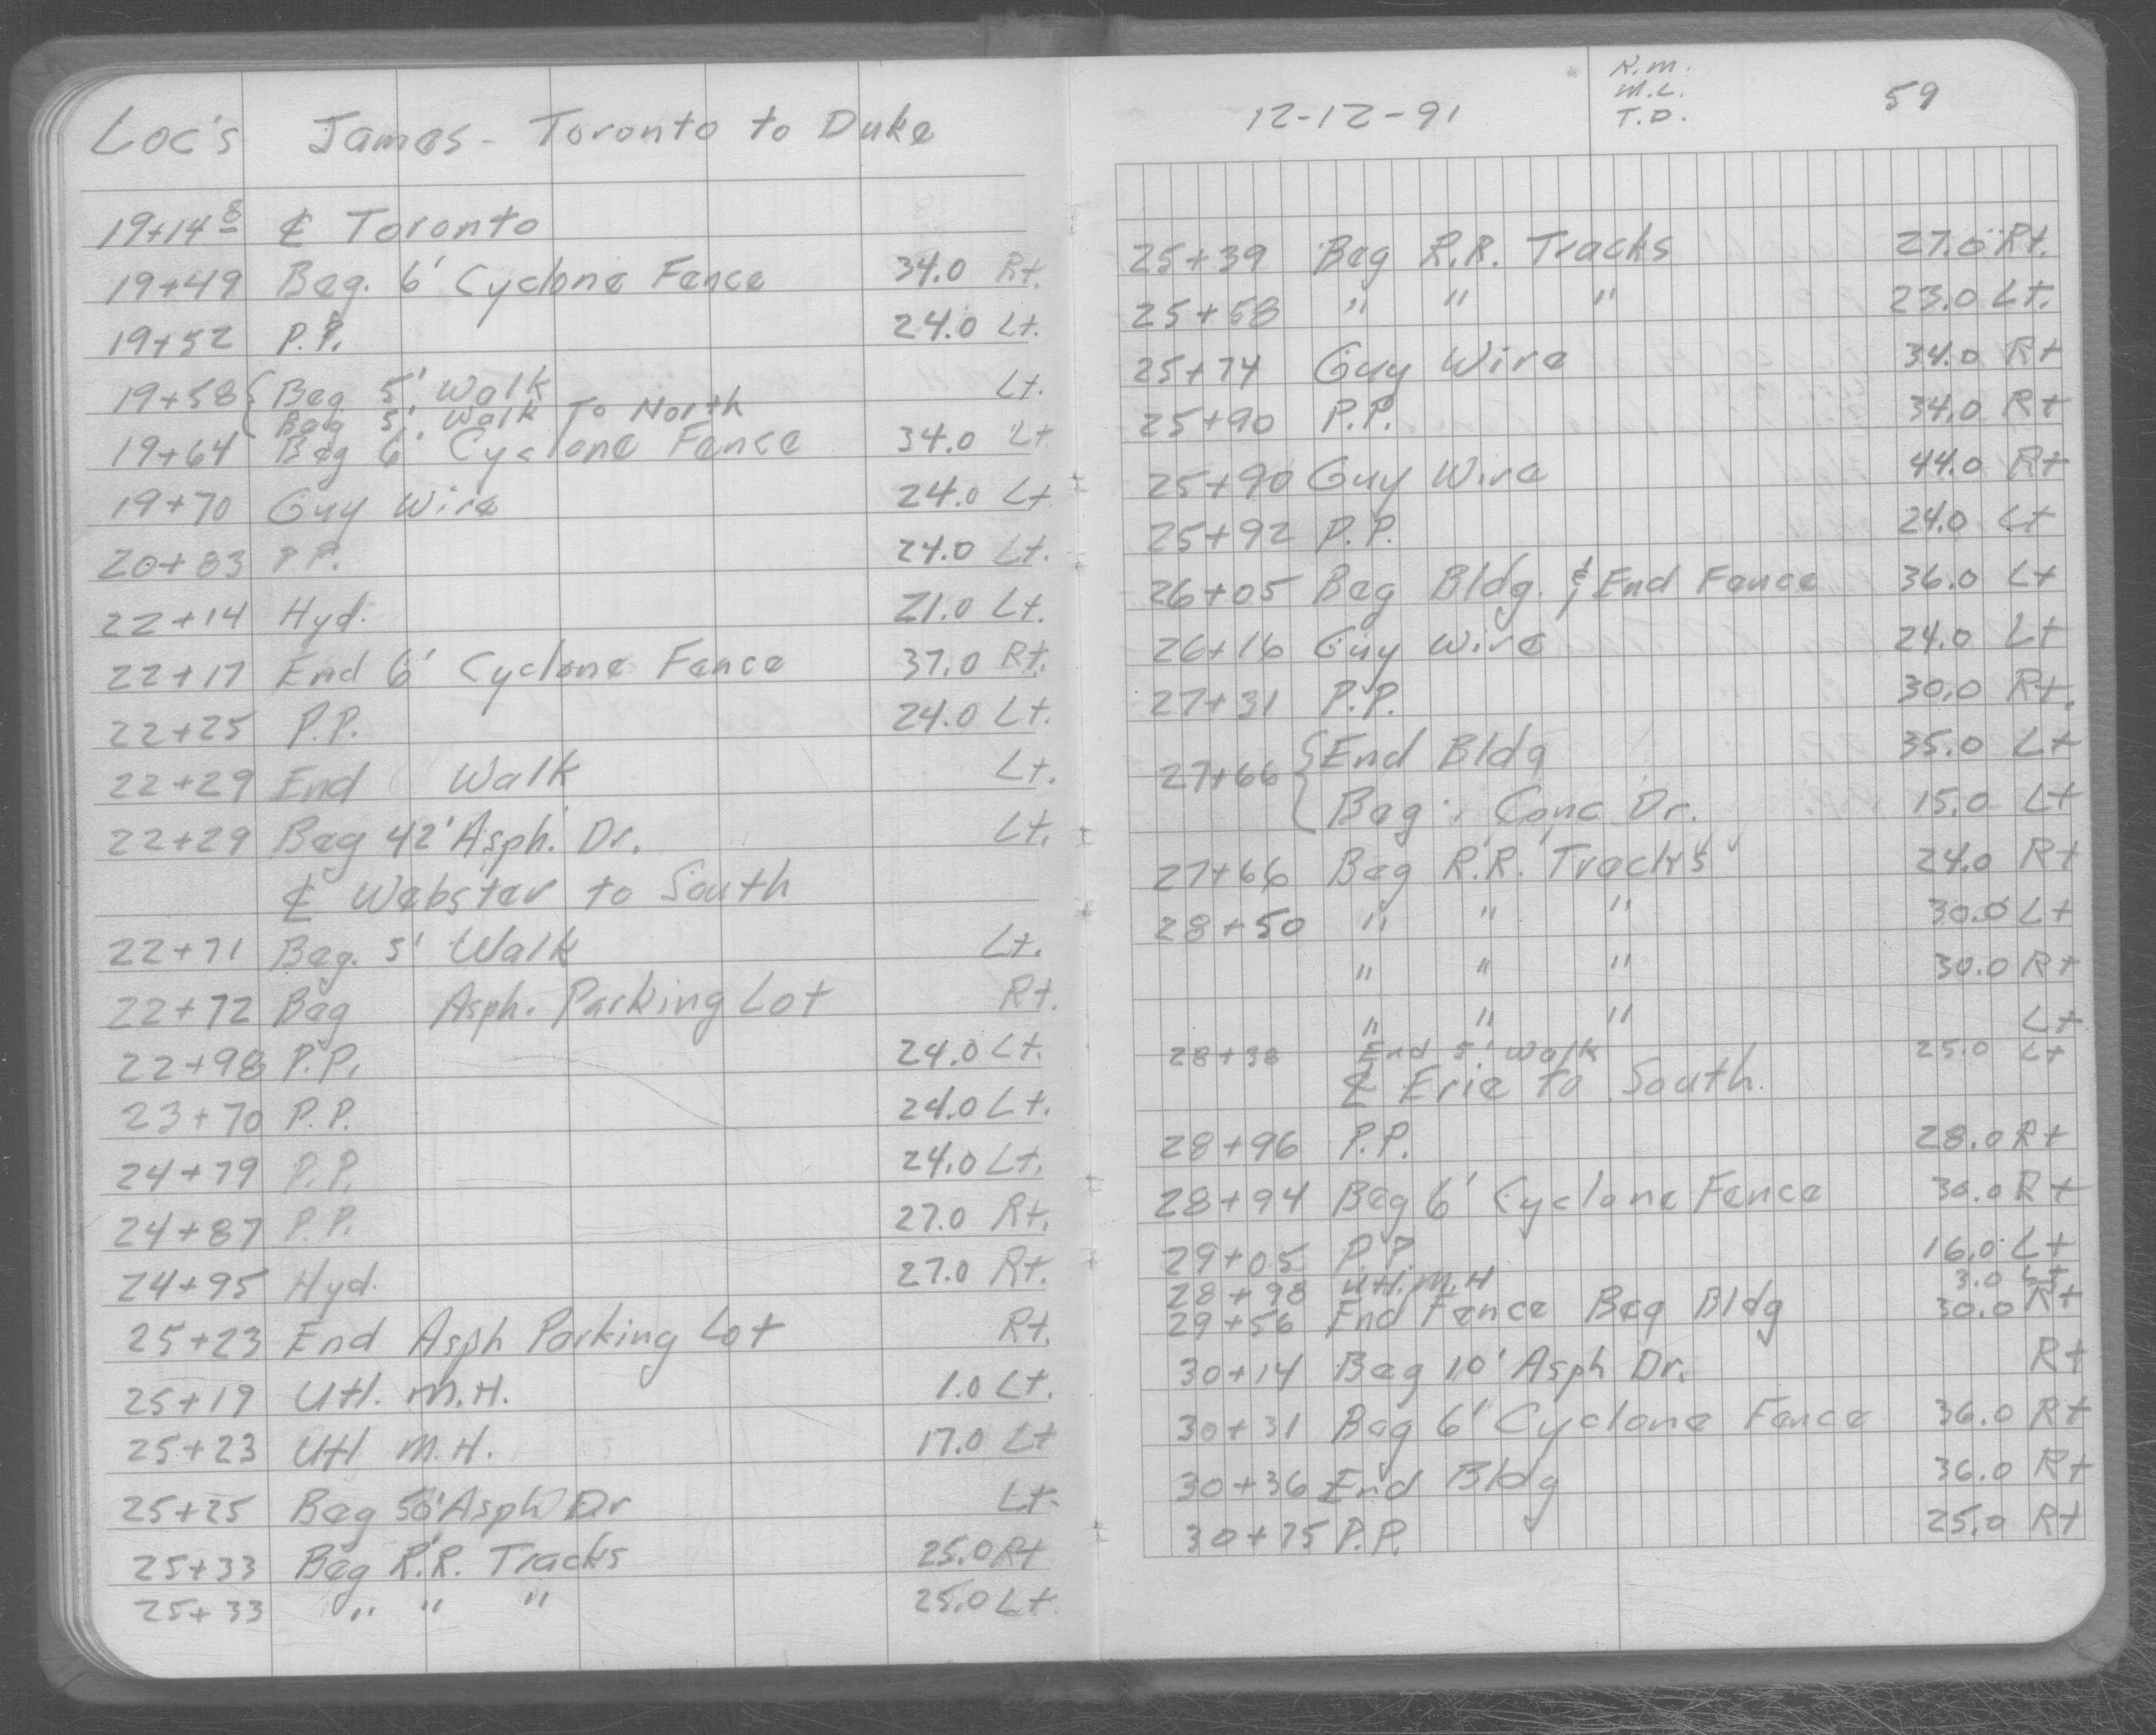 Loc's James - Toronto to Duke
19+14 8 ℄ Toronto
19+49 Beg. 6' Cyclone Fence 34.0 Rt.
19+52 P.P. 24.0 Lt.
19+58 { Beg 5' Walk Lt.
Beg 5' Walk To North
19+64 Beg 6' Cyclone Fence 34.0 Lt
19+70 Guy Wire 24.0 Lt
20+83 P.P. 24.0 Lt.
22+14 Hyd. 21.0 Lt.
22+17 End 6' Cyclone Fence 37.0 Rt.
22+25 P.P. 24.0 Lt.
22+29 End Walk Lt.
22+29 Beg 42' Asph. Dr. Lt.
℄ Webster to South
22+71 Beg. 5' Walk Lt.
22+72 Beg Asph. Parking Lot Rt.
22+98 P.P. 24.0 Lt.
23+70 P.P. 24.0 Lt.
24+79 P.P. 24.0 Lt.
24+87 P.P. 27.0 Rt.
24+95 Hyd. 27.0 Rt.
25+23 End Asph Parking Lot Rt.
25+19 Utl. M.H. 1.0 Lt.
25+23 Utl M.H. 17.0 Lt
25+25 Beg 50' Asph Dr Lt.
25+33 Beg R.R. Tracks 25.0 Rt
25+33 " " " 25.0 Lt.
12-12-91
R.M.
M.L.
T.D.
59
25+39 Beg R.R. Tracks 27.0 Rt.
25+58 " " " 23.0 Lt.
25+74 Guy Wire 34.0 Rt
25+90 P.P. 34.0 Rt
25+90 Guy Wire 44.0 Rt
25+92 P.P. 24.0 Lt
26+05 Beg Bldg. & End Fence 36.0 Lt
26+16 Guy Wire 24.0 Lt
27+31 P.P. 30.0 Rt.
27+66 { End Bldg 35.0 Lt
Beg. Conc Dr. 15.0 Lt
27+66 Beg R.R. Tracks 24.0 Rt
28+50 " " " 30.0 Lt
" " " 30.0 Rt
" " " Lt
28+38 End 5' Walk 25.0 Lt
℄ Erie to South
28+96 P.P. 28.0 Rt
28+94 Beg 6' Cyclone Fence 30.0 Rt
29+05 P.P. 16.0 Lt
28+98 Utl. M.H 3.0 Lt
29+56 End Fence Beg Bldg 30.0 Rt
30+14 Beg 10' Asph Dr. Rt
30+31 Beg 6' Cyclone Fence 36.0 Rt
30+36 End Bldg 36.0 Rt
30+75 P.P. 25.0 Rt